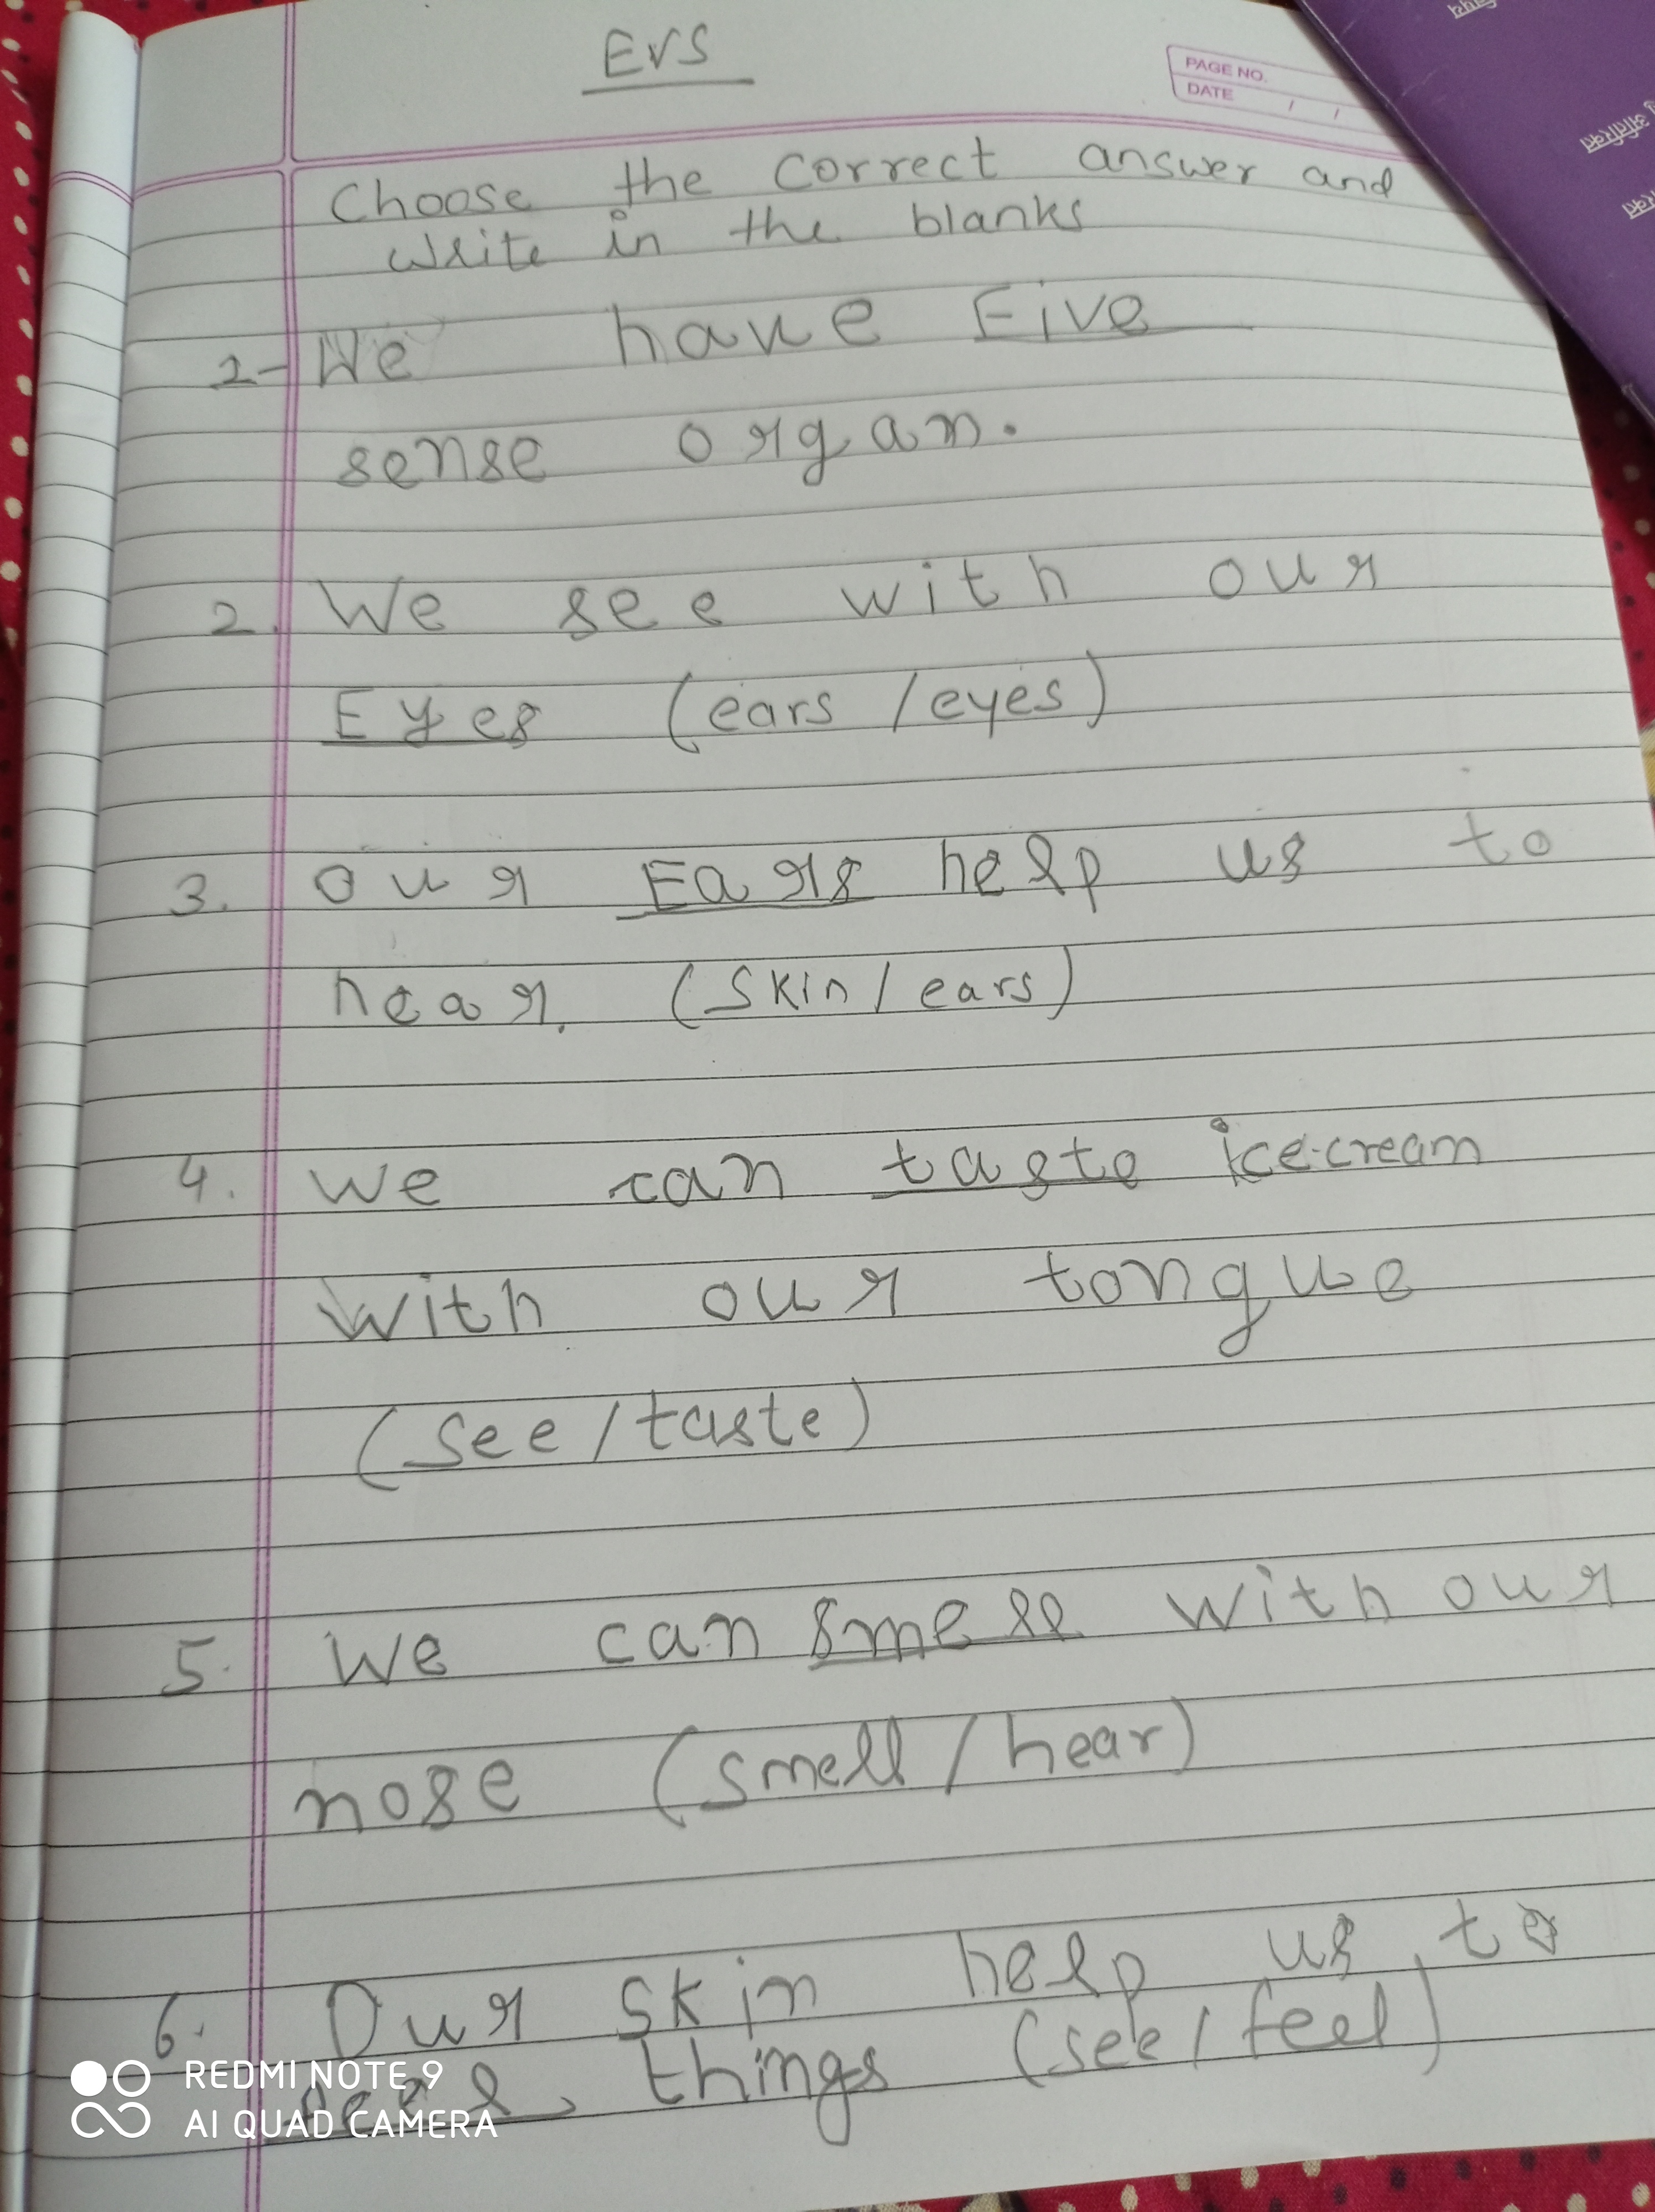 EVS
PAGE NO.
DATE / /
Choose the correct answer and
write in the blanks
1- We have Five
sense organ.
2. We see with our
Eyes (ears / eyes)
3. Our Ears help us to
hear. (Skin / ears)
4. We can taste ice-cream
with our tongue
(See / taste)
5. We can smell with our
nose (Smell / hear)
6. Our skin help us to
things (see / feel)
REDMI NOTE 9
AI QUAD CAMERA